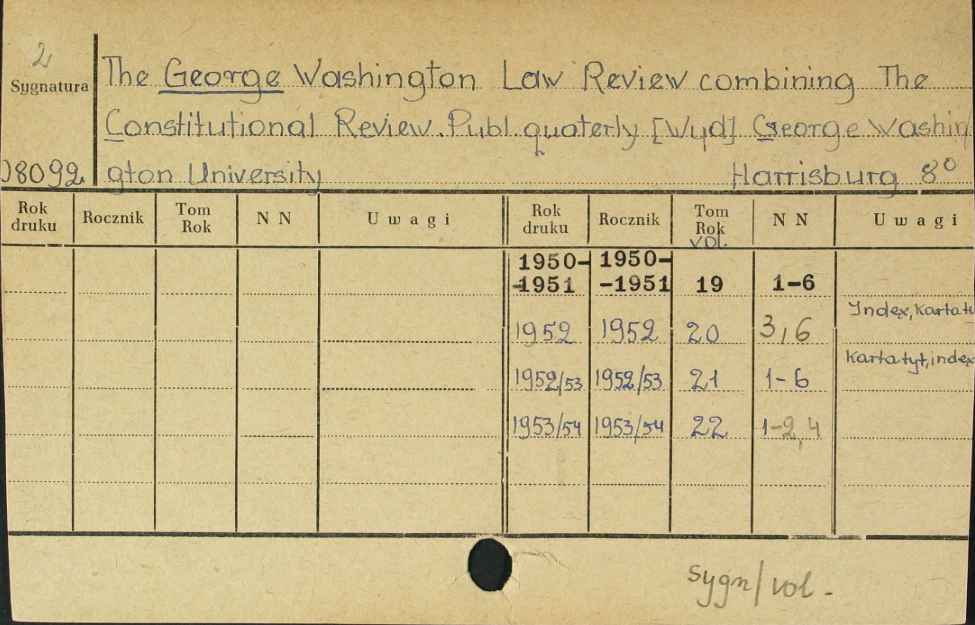 2
Sygnatura
The George Washington Law Review combining The
Constitutional Review. Publ. quaterly [Wyd] George Washin
gton University Harrisburg 8°
8092
Rok druku Rocznik Tom Rok N N Uwagi Rok druku Rocznik Tom Rok N N Uwagi
vol.
1950- 1950-
-1951 -1951 19 1-6
Index, karta ty
1952 1952 20 3,6
Karta tyt, index
1952/53 1952/53 21 1-6
1953/54 1953/54 22 1-2,4
sygn/vol-